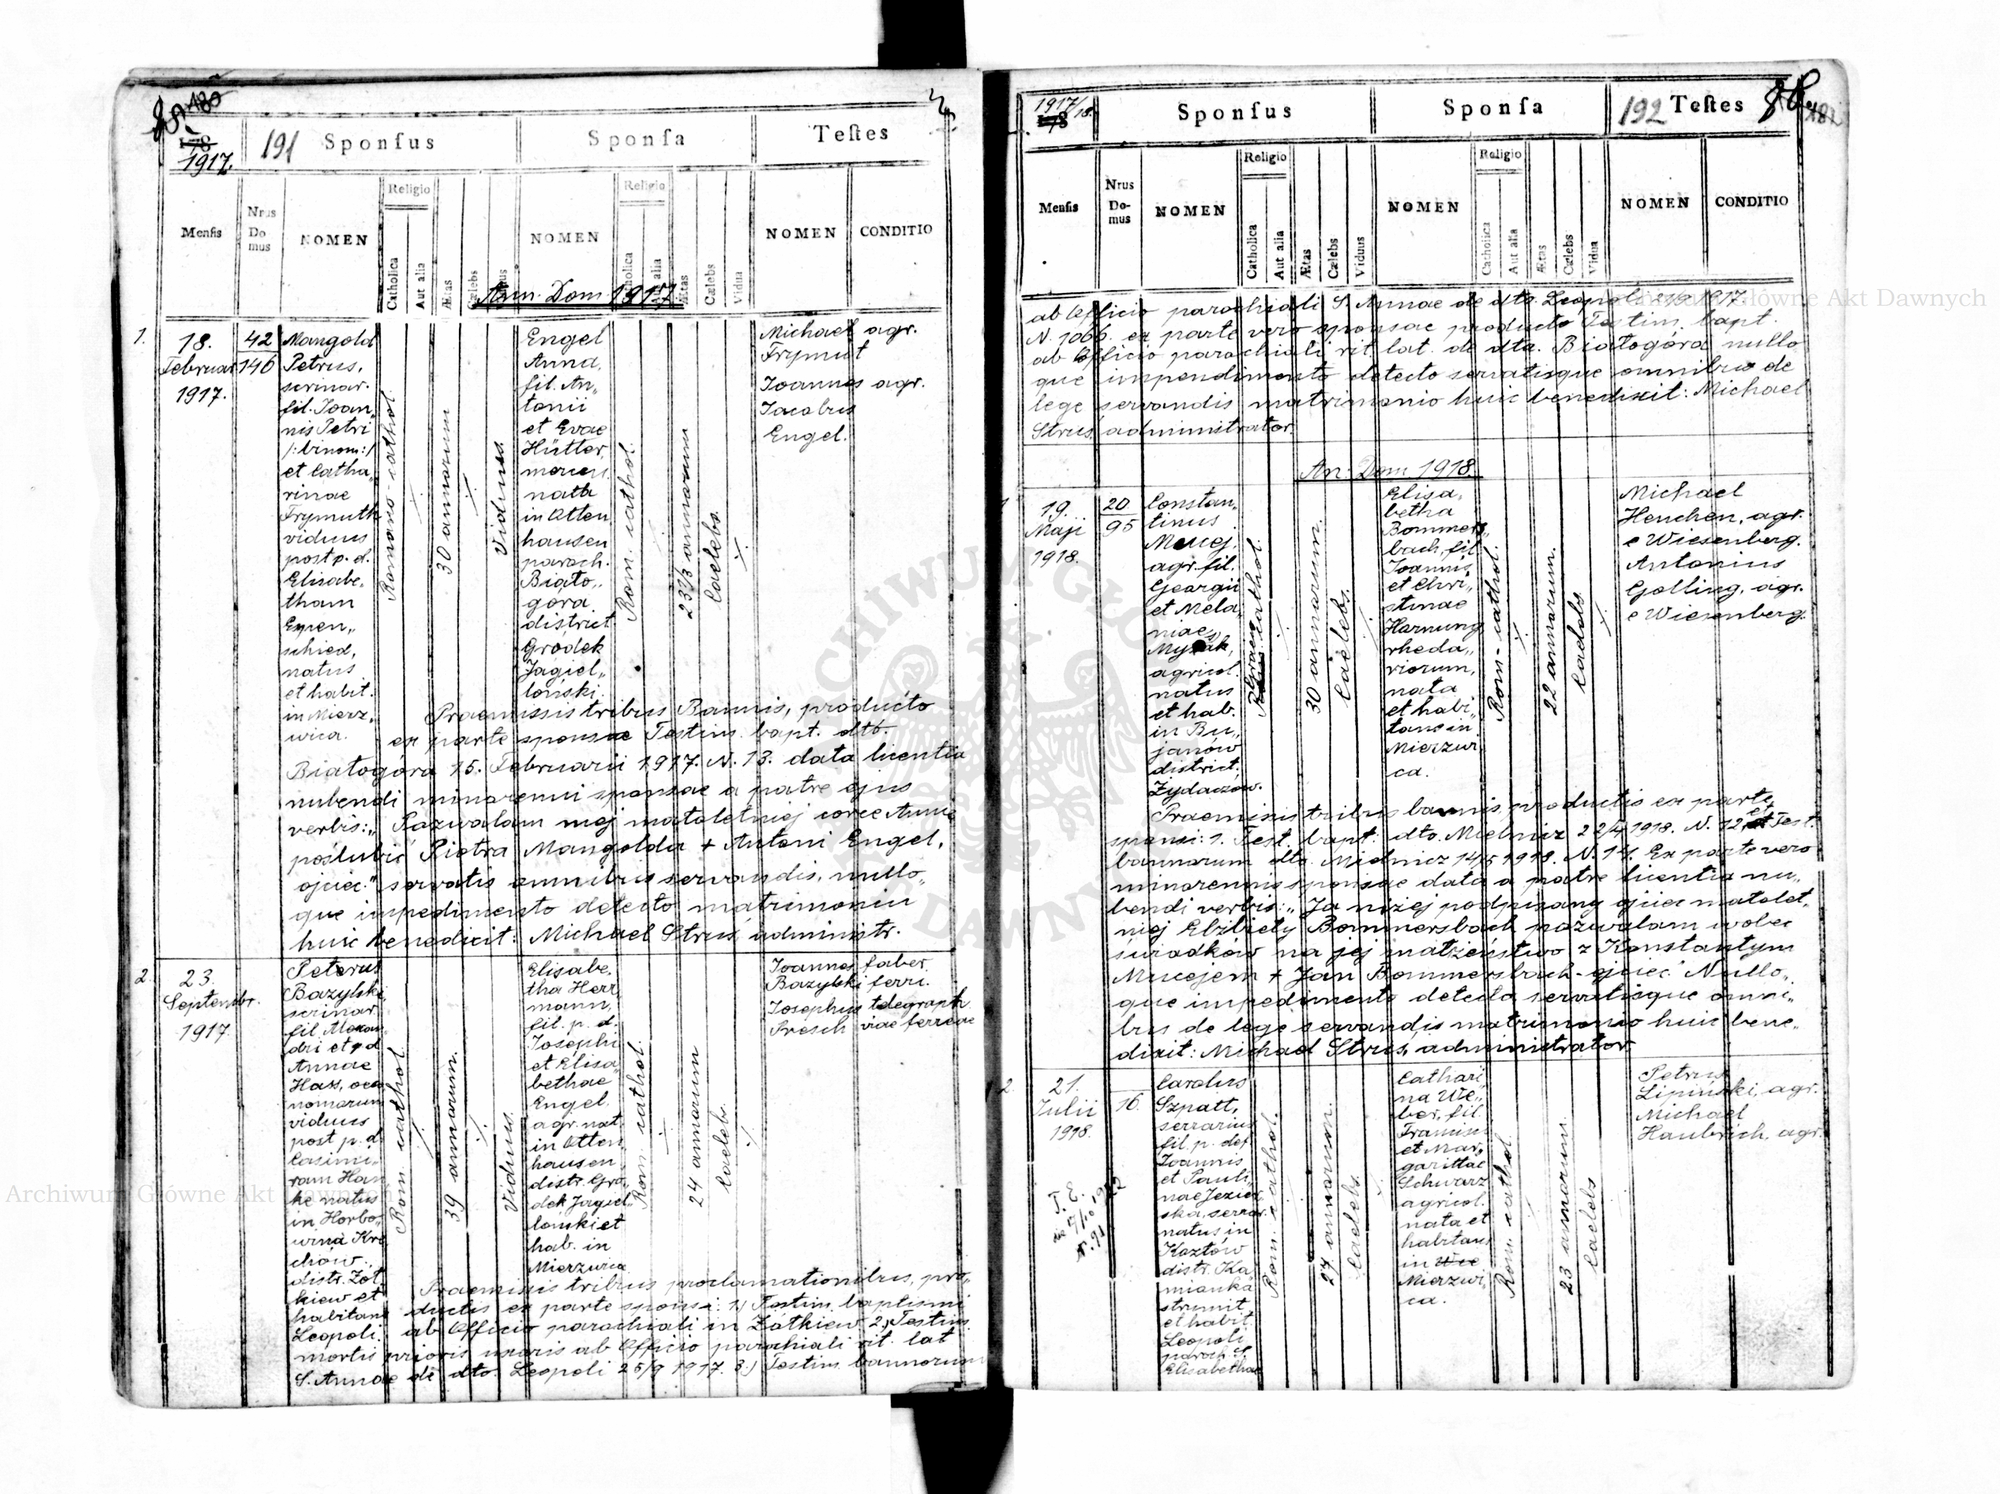 191 Sponsus Sponsa Testes
1917.
Mensis Nrus Domus NOMEN Religio Catholica Aut alia Ætas Cælebs NOMEN Religio Ætas Cælebs Vidua NOMEN CONDITIO
Ann. Dom 1917
1. 18. Februar 1917.
42
146
Mangold
Petrus,
serinar.
fil. Joan„
nis Petri
/:binom:/
et Catha„
rinae
Frymuth
viduus
post p. d.
Elisabe„
tham
schied,
natus
et habit.
in Mierz„
wica.
Romano-cathol.
30 annorum
Viduus
Engel
Anna,
fil. An„
tonii
et Evae
Hütter
nata
in Otten
hausen
paroch.
Biało„
góra
district
Gródek
Jagiel„
loński.
Rom. cathol.
23 2/3 annorum
Caelebs.
Michael agr.
Frymut
Joannes agr.
Jacobus
Engel.
Praemissis tribus Bannis, producto
ex parte sponsae Testim. bapt. dto.
Białogóra 15. Februarii 1917. N. 13. data licentia
nubendi minorenni sponsae a patre ejus
verbis: „Pozwalam mej małoletniej córce Annie
poślubić Piotra Mangolda + Antoni Engel,
ojciec." servatis omnibus servandis, nullo„
que impedimento detecto matrimoniu
huic benedicit: Michael Strus, administr.
2. 23. Septembr. 1917.
Peterus
Bazylski
serinar.
fil. Alexan
dri et p d
Annae
Has, oeco
nomorum
viduus
post p. d.
Casimi„
ram Han
ke natus
in Horbo„
chów.
distr. Żół
kiew et
habitans
Leopoli.
Rom cathol.
39 annorum.
Viduus.
Elisabe„
tha Herr
mann,
fil. p. d.
Josephi
et Elisa„
bethae
Engel.
agr. nat.
in Otten„
hausen.
distr. Gró„
dek Jagiel„
loński et
hab. in
Mierzwica
Rom cathol.
24 annorum
Caeleb.
Joannes faber.
Bazylski ferri.
Josephus telegraph
Presch viae ferreae
Praemissis tribus proclamationibus, pro„
ductis ex parte sponsi: 1.) Testim. baptismi
ab Officio parochiali in Żółkiew 2.) Testim.
mortis prioris uxoris ab Officio parochiali rit. lat
S. Annae de dto. Leopoli 25/9 1917. 3.) Testim. bannorum
1917/18. Sponsus Sponsa 192 Testes
Mensis Nrus Domus NOMEN Religio Catholica Aut alia Ætas Cælebs Viduus NOMEN Religio Catholica Aut alia Ætas Cælebs Vidua NOMEN CONDITIO
ab Officio parochiali S. Annae de dto. Leopoli 1917.
N. 1066. ex parte vero sponsae producto Testim. bapt.
ab Officio parochiali rit. lat. de dto. Białogóra nullo
que impendimento detecto servatisque omnibus de
lege servandis matrimonio huic benedixit: Michael
Strus, administrator.
An: Dom 1918.
19. Maji 1918.
20
95
Constan„
tinus
agr. fil.
Georgii
et Mela„
niae
agricol.
natus
et hab.
in Bu„
janów
district.
Żydaczów.
30 annorum.
Caelebs.
Elisa„
betha
Bommers„
bach, fil
Joannis
et Chri„
stinae
Harnung
rheda„
riorum,
nata
et habi„
tans in
Mierzwi
ca.
Rom-cathol.
22 annorum.
Caelebs
Michael
Henchen, agr.
e Wiesenberg.
Antonius
Golling, agr.
e Wiesenberg.
Praemissis tribus bannis, productis ex parte
sponsi: 1. Test. bapt. dto. Mielnicz 22/4 1918. N. 12, et Test.
bannorum dto. Mielnicz 14/5 1918. N. 14. Ex parte vero
minorennis sponsae data a patre licentia nu„
bendi verbis: „Ja niżej podpisany ojciec małolet„
niej Elżbiety Bommersbach pozwalam wobec
świadków na jej małżeństwo z Konstantym
Mucejem + Jan Bommersbach-ojciec" Nullo„
que impedimento detecto servatisque omni„
bus de lege servandis matrimonio huic bene„
dixit: Michael Strus, administrator.
2. 21. Julii 1918.
16.
Carolus
Szpatt,
serrarius
fil. p. def
Joannis
et Pauli„
nae Jezier
ska, serrar.
natus in
Kozłów
distr. Ka„
mionka
strumił.
et habit.
Leopoli
paroch S.
Elisabethae
Rom. cathol.
27 annorum.
Caelebs.
Cathari„
na We„
ber, fil.
Francisci
et Mar„
garithae
Schwarz
agricol.
nata et
habitans
in
Mierzwi„
ca.
Rom. cathol
23 annorum.
Caelebs
Petrus
Lipiński, agr.
Michael
Haubrich, agr.
Archiwum Główne Akt Dawnych
Archiwum Główne Akt Dawnych
ARCHIWUM GŁÓWNE AKT DAWNYCH